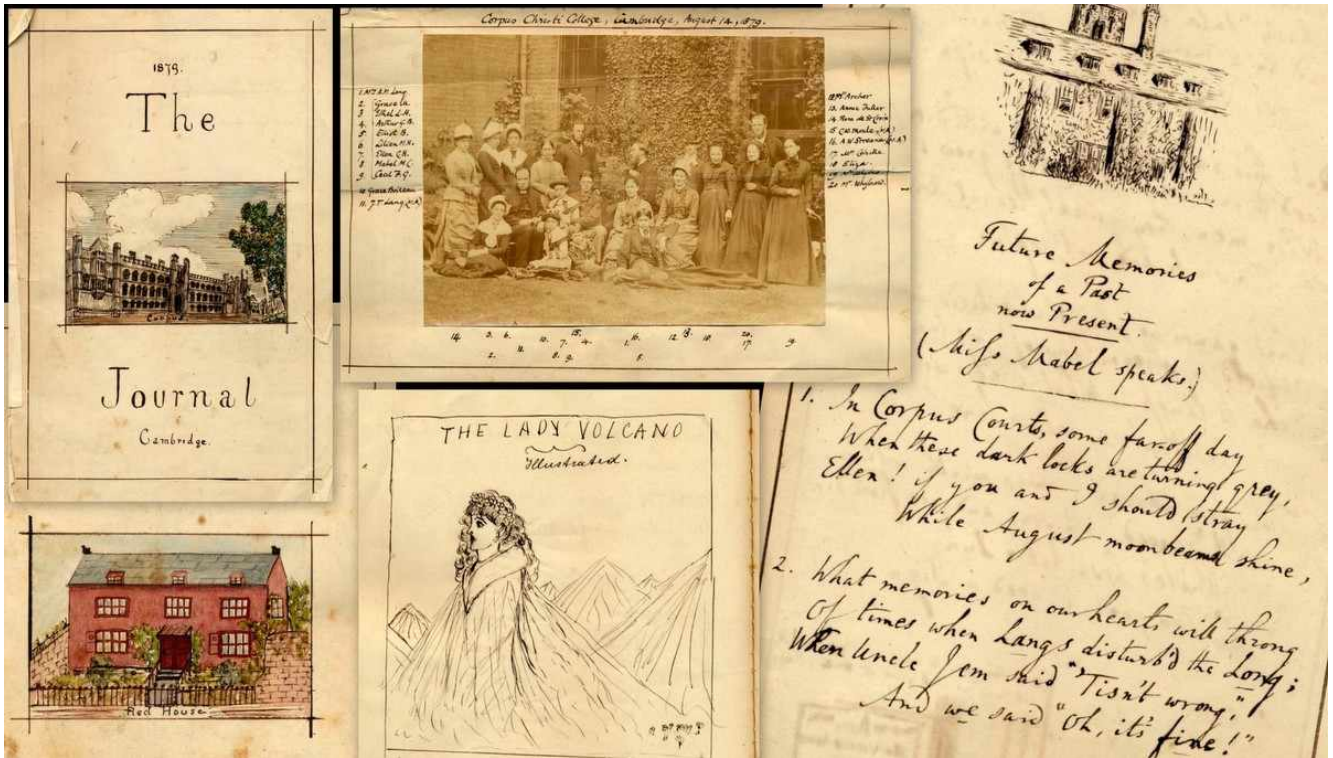 1879.
The
Corpus
Journal
Cambridge.
Red House
Corpus Christi College, Cambridge, August 14, 1879.
2. Grace
3. Ethel L.H.
4. Arthur G.B.
5. Elliot B.
6. Lilian H.H.
7. Ellen C.H.
8. Mabel M.C.
9. Cecil F.G.
11. J.T. Lang (M.A)
Archer
13. Annie Fuller
14. Rose de St Croix
15. C.W. Moule (M.A)
17. Mr Girdle
18. Eliza.
20. Mr Whybrow
14. 3. 6. 15. 13. 20.
10. 7. 4. 1. 16. 12 18. 17. 9
2. 11. 8. 9. 5.
THE LADY VOLCANO
Illustrated.
Future Memories
of a Past
now Present.
(Miss Mabel speaks.)
1. In Corpus Courts, some far-off day
When these dark locks are turning grey,
Ellen! if you and I should stray
While August moonbeams shine,
2. What memories on our hearts will throng
Of times when Langs disturb'd the Long;
When Uncle Jem said "Tisn't wrong,"
And we said "Oh, it's fine!"